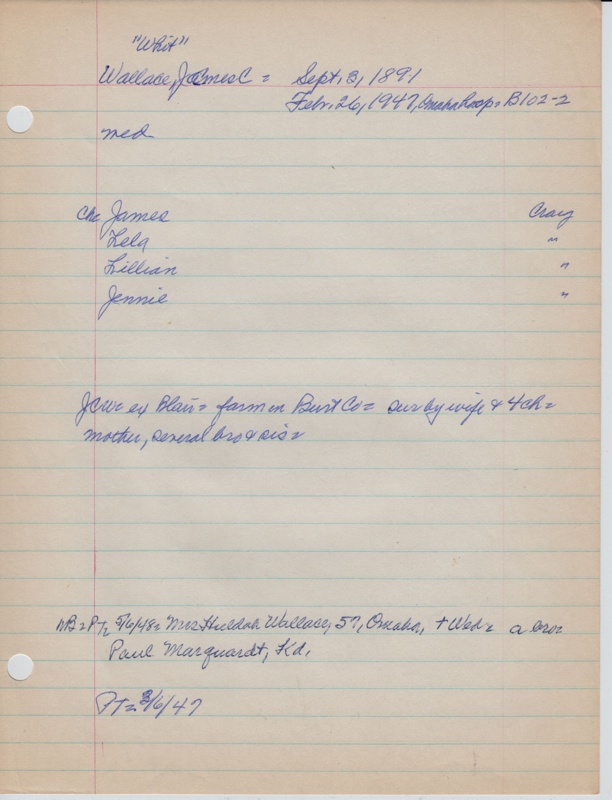 "Whit"
Wallace, James C = Sept. 3, 1891
Febr. 26, 1947, Omaha hosp = B102-2
med
Ch: James Craig
Lela "
Lillian "
Jennie "
JCW = ex Blair = farm in Burt Co = sur by wife & 4 ch =
mother, several bro & sis =
NB = PT 5/6/48 = Mrs Huldah Wallace, 57, Omaha, + Wed = a bro =
Paul Marquardt, Kd,
PT = 3/6/47